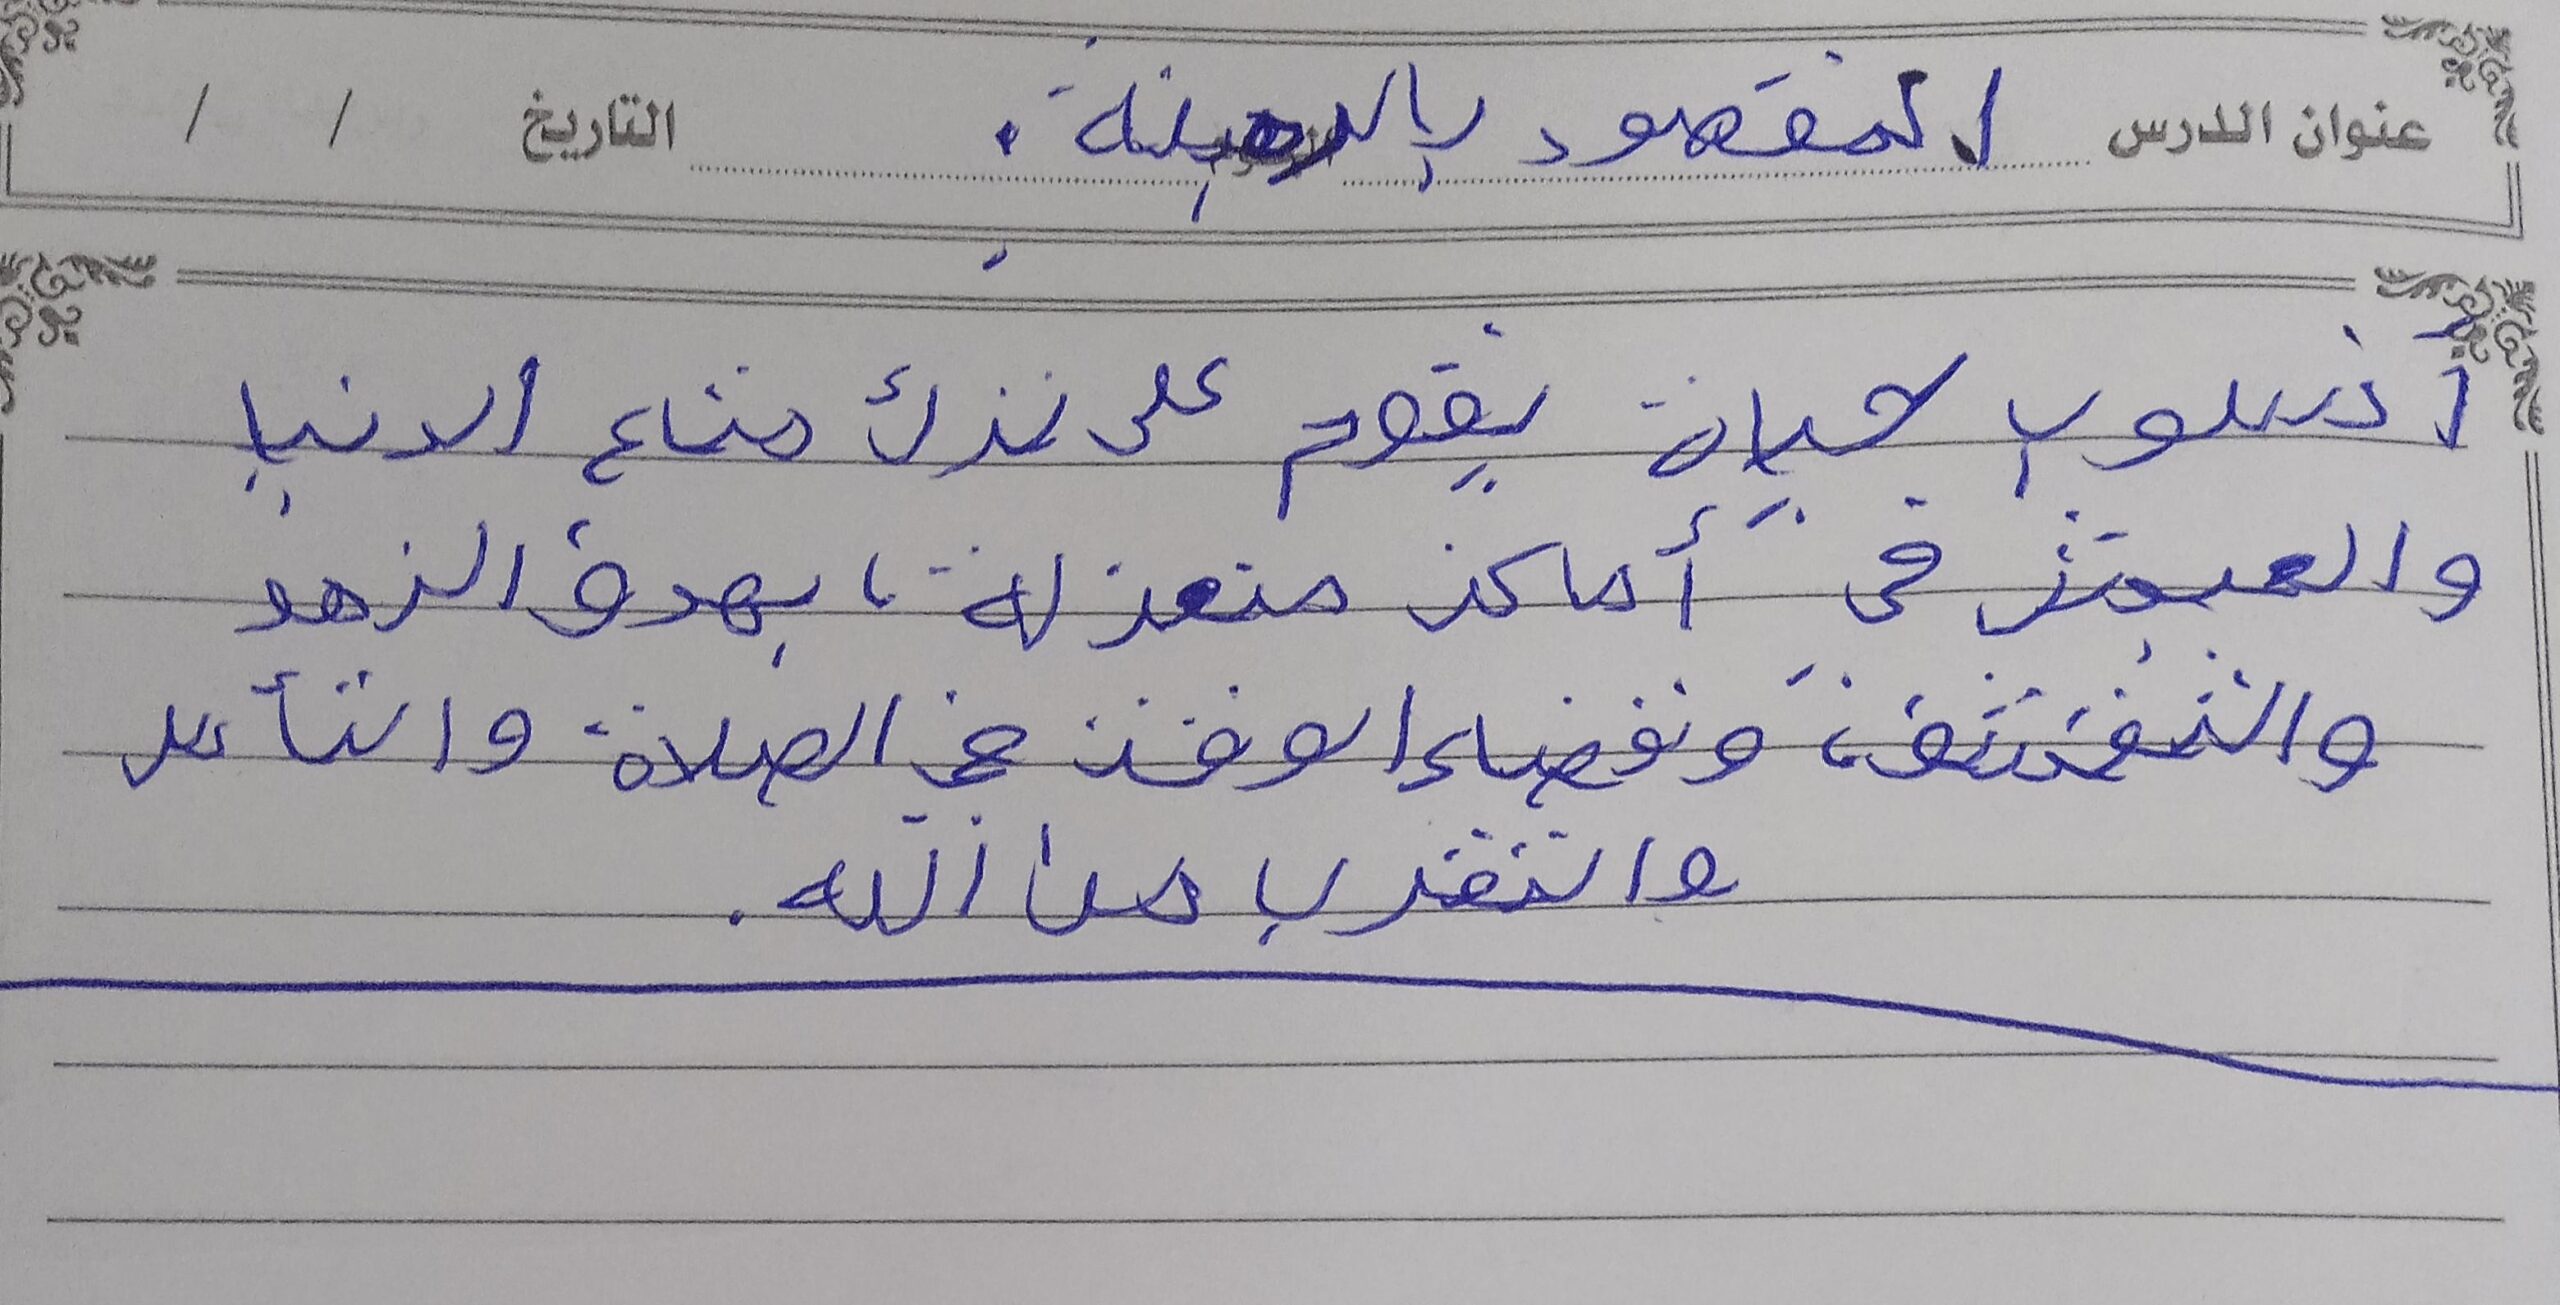 عنوان الدرس المقصود بالرهبنة: التاريخ / /
أسلوب حياة يقوم على ترك متاع الدنيا
والعيش في أماكن منعزلة، بهدف الزهد
والتقشف، وقضاء الوقت في الصلاة والتأمل
والتقرب من الله.